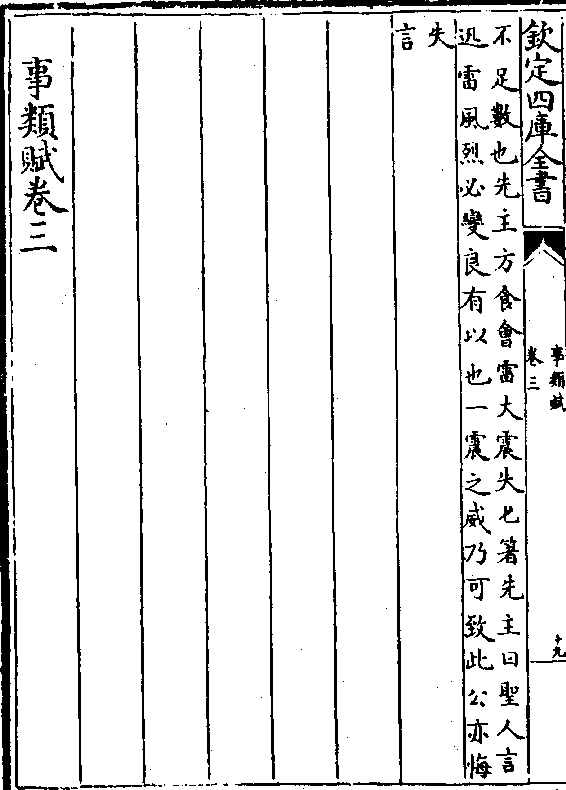 欽定四庫全書
事類賦
卷三
十九
不足數也先主方食會雷大震失匕箸先主曰聖人言
迅雷風烈必變良有以也一震之威乃可致此公亦悔
失
言
事類賦卷三